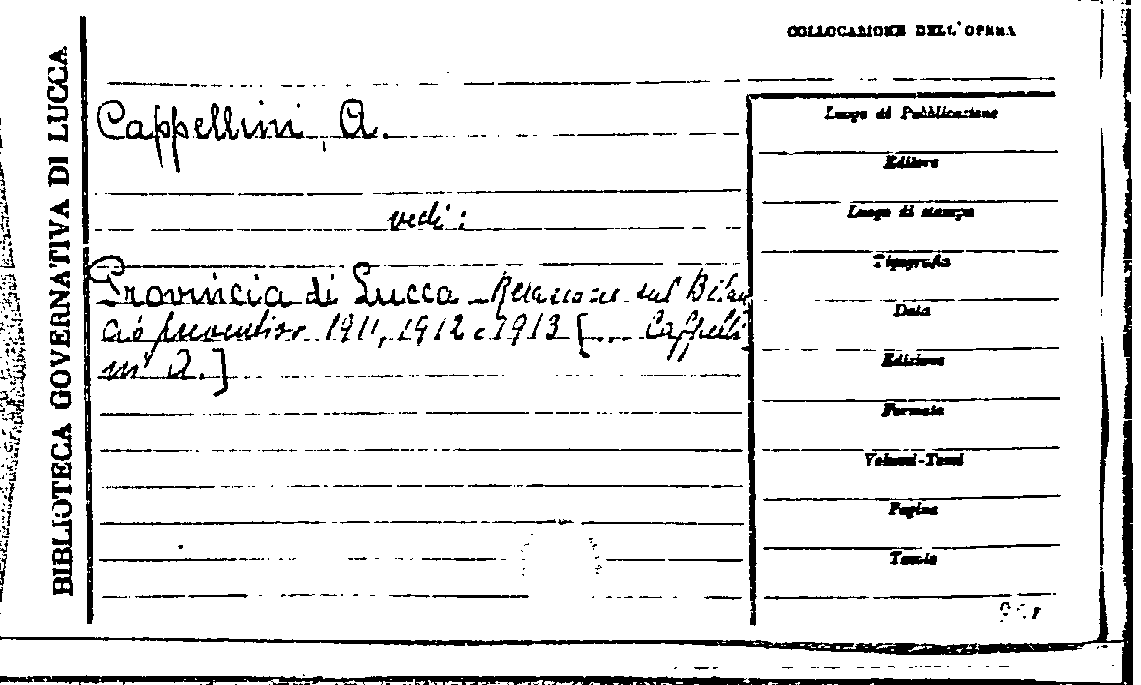 COLLOCAZIONE DELL'OPERA
BIBLIOTECA GOVERNATIVA DI LUCCA
Cappellini, A.
vedi:
Provincia di Lucca - Relazione sul Bilan
cio preventivo 1911, 1912 e 1913 [... Cappelli
ni A.]
Luogo di Pubblicazione
Editore
Luogo di stampa
Tipografia
Data
Edizione
Formato
Volumi-Tomi
Pagine
Tavole